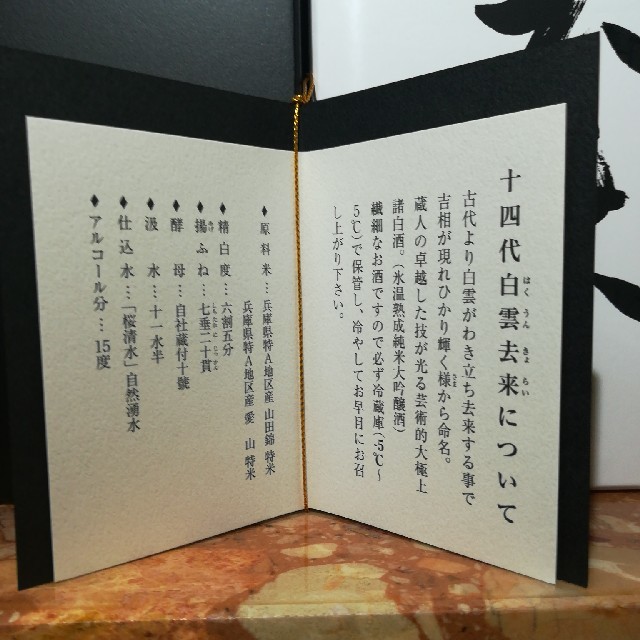 十四代白雲去来について
古代より白雲がわき立ち去来する事で
吉相が現れひかり輝く様から命名。
蔵人の卓越した技が光る芸術的大極上
諸白酒。（氷温熟成純米大吟醸酒）
繊細なお酒ですので必ず冷蔵庫（5℃〜
5℃）で保管し、冷やしてお早目にお召
し上がり下さい。
♦原料米…兵庫県特A地区産 山田錦 特米
兵庫県特A地区産 愛山 特米
♦精白度…六割五分
♦揚ふね…七垂二十貫
♦酵母…自社蔵付十號
♦汲水…十一水半
♦仕込水…「桜清水」自然湧水
♦アルコール分…15度